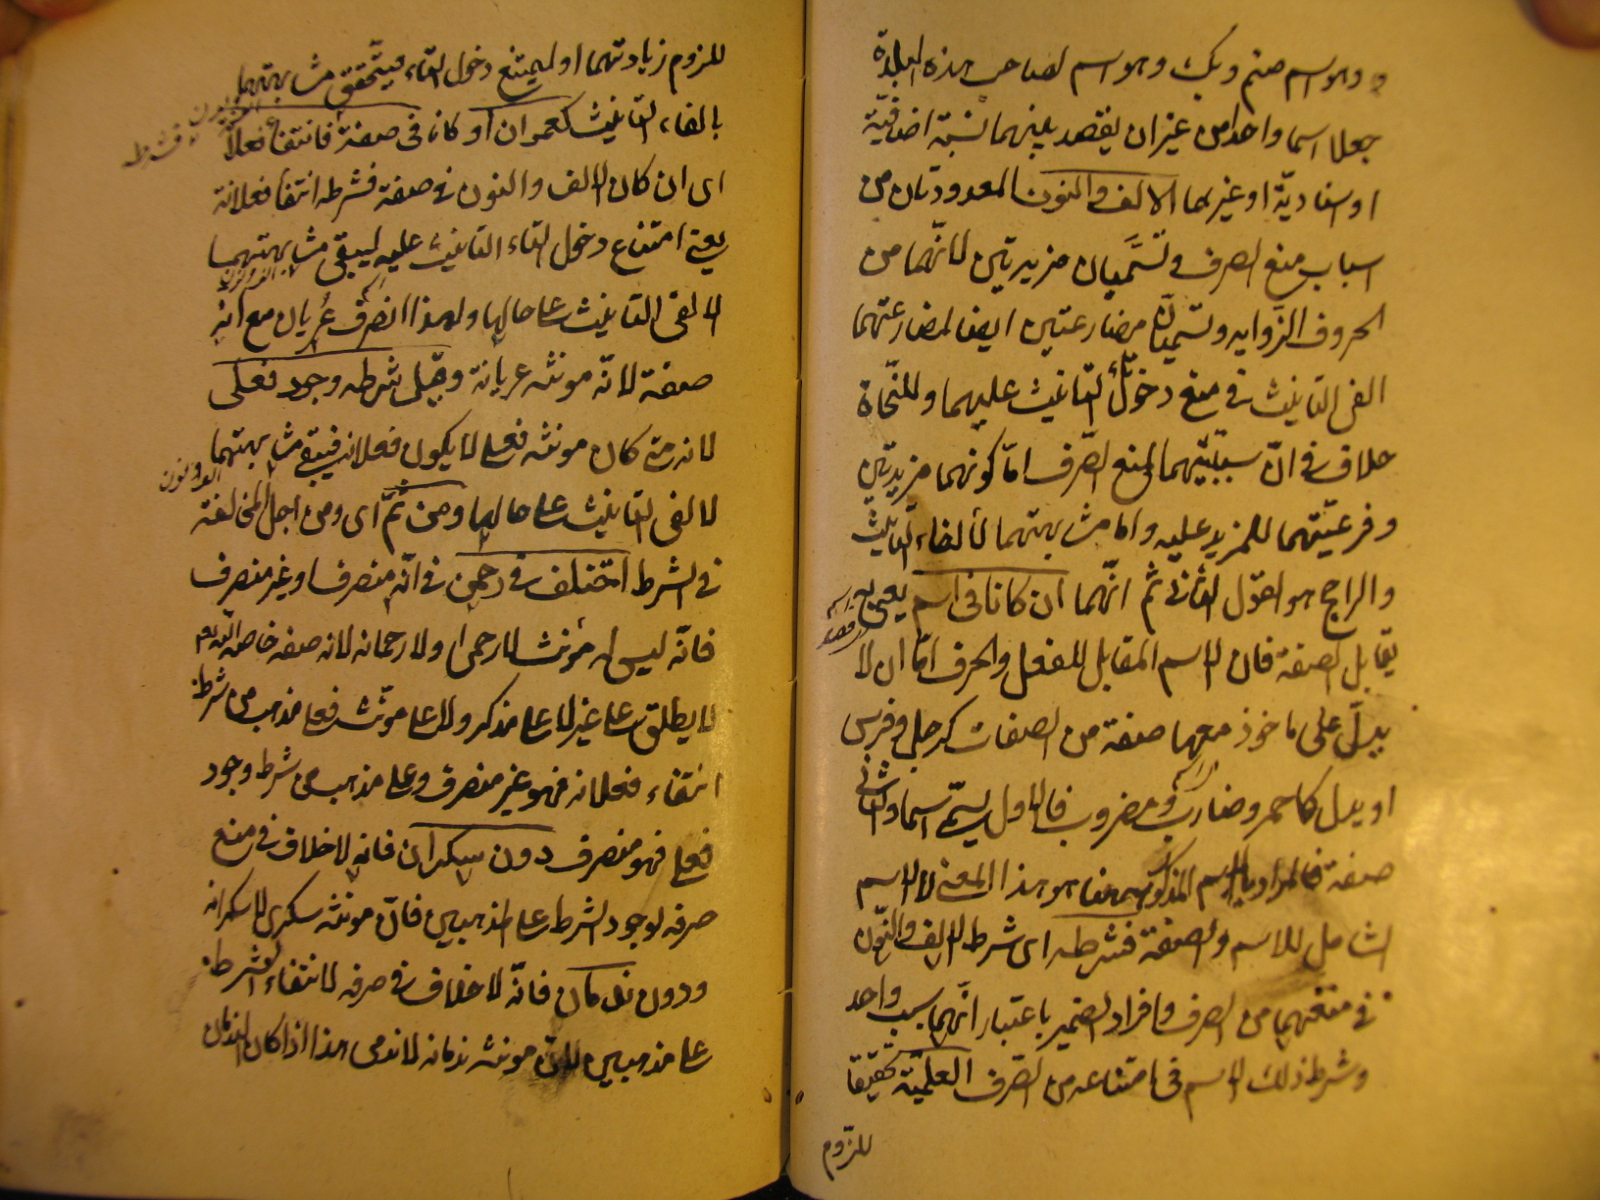 وهو اسم صنم وبك وهو اسم لصاحب هذه البلدة
جعلا اسما واحدا من غير ان يقصد بينهما نسبة اضافية
او اسنادية او غيرهما الالف والنون المعدودتان من
اسباب منع الصرف وتسميان مزيدتين لانهما من
الحروف الزوايد وتسميان مضارعتين ايضا لمضارعتهما
الفى التانيث فى منع دخول تاء التانيث عليهما وللنحاة
خلاف فى ان سببيتهما لمنع الصرف اما كونهما مزيدتين
وفرعيتهما للمزيد عليه واما مشابهتهما لألفاء التانيث
والراجح هو القول الثانى ثم انهما ان كانا فى اسم يعنى به
يقابل الصفة فان الاسم المقابل للفعل والحرف اما ان لا
يدل على ما خوذ معها صفة من الصفات كرجل وفرس
او يدل كاحمر وضارب ومضروب فالاول يسمى اسما والثانى
صفة فالمراد بالاسم المذكور ههنا هو هذا المعنى لا الاسم
الشامل للاسم والصفة فشرطه اى شرط الالف والنون
فى منعهما من الصرف وافراد الضمير باعتبار انهما سبب واحد
وشرط ذلك الاسم فى امتناعه من الصرف العلمية تحقيقا
للزوم
للزوم زيادتهما او ليمتنع دخول التاء فيتحقق مشابهتهما
بالفاء التانيث كعمران او كانا فى صفة فانتفا فعلانة
فشرطه
اى ان كان الالف والنون فى صفة فشرطه انتفا فعلانة
يعنى امتناع دخول التاء التانيث عليه ليبقى مشابهتهما
الالف والنون
لالفى التانيث على حالها ولهذا انصرف عريان مع انه
صفة لانه مونثه عريانة وقيل شرطه وجود فعلى
لانه متى كان مونثه فعلى لا يكون فعلانه فيبقى مشابهتهما
الف ونون
لالفى التانيث على حالها ومن ثم اى ومن اجل المخالفة
فى الشرط اختلف فى رحمن فى انه منصرف او غير منصرف
فانه ليس له مؤنث لا رحمى ولا رحمانه لانه صفه خاصه لله تعم
لا يطلق على غيره لا على مذكر ولا على مونث فعلى مذهب من شرط
انتفاء فعلانه فهو غير منصرف وعلى مذهب من شرط وجود
فعلى فهو منصرف دون سكران فانه لا خلاف فى منع
صرفه لوجود الشرط على المذهبين فان مونثه سكرى لا سكرانه
ودون ندمان فانه لا خلاف فى صرفه لانتفاء الشرط
على مذهبين لان مونثه ندمانه لا ندمى هذا اذا كان الندمان